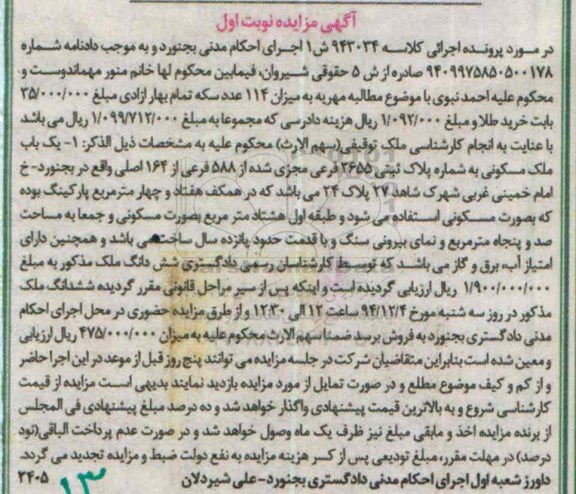 آگهی مزایده نوبت اول
در مورد پرونده اجرائی کلاسه ۹۴۳۰۳۴ ش۱ اجرای احکام مدنی بجنورد و به موجب دادنامه شماره
۹۴۰۹۹۷۵۸۵۰۵۰۰۱۷۸ صادره از ش ۵ حقوقی شیروان، فیمابین محکوم لها خانم منور مهماندوست و
محکوم علیه احمد نبوی با موضوع مطالبه مهریه به میزان ۱۱۴ عدد سکه تمام بهار ازادی مبلغ ۳۵/۰۰۰/۰۰۰
بابت خرید طلا و مبلغ ۱/۰۹۲/۰۰۰ ریال هزینه دادرسی که مجموعا به مبلغ ۱/۰۹۹/۷۱۲/۰۰۰ ریال می باشد
با عنایت به انجام کارشناسی ملک توقیفی(سهم الارث) محکوم علیه به مشخصات ذیل الذکر: ۱- یک باب
ملک مسکونی به شماره پلاک ثبتی ۳۶۵۵ فرعی مجزی شده از ۵۸۸ فرعی از ۱۶۴ اصلی واقع در بجنورد-خ
امام خمینی غربی شهرک شاهد ۲۷ پلاک ۲۴ می باشد که در همکف هفتاد و چهار مترمربع پارکینگ بوده
که بصورت مسکونی استفاده می شود و طبقه اول هشتاد متر مربع بصورت مسکونی و جمعا به مساحت
صد و پنجاه مترمربع و نمای بیرونی سنگ و با قدمت حدود پانزده سال ساخت می باشد و همچنین دارای
امتیاز آب، برق و گاز می باشد که توسط کارشناسان رسمی دادگستری شش دانگ ملک مذکور به مبلغ
۱/۹۰۰/۰۰۰/۰۰۰ ریال ارزیابی گردیده است و اینکه پس از سیر مراحل قانونی مقرر گردیده ششدانگ ملک
مذکور در روز سه شنبه مورخ ۹۴/۱۲/۴ ساعت ۱۲ الی ۱۲:۳۰ و از طرق مزایده حضوری در محل اجرای احکام
مدنی دادگستری بجنورد به فروش برسد ضمنا سهم الارث محکوم علیه به میزان ۴۷۵/۰۰۰/۰۰۰ ریال ارزیابی
و معین شده است بنابراین متقاضیان شرکت در جلسه مزایده می توانند پنج روز قبل از موعد در این اجرا حاضر
و از کم و کیف موضوع مطلع و در صورت تمایل از مورد مزایده بازدید نمایند بدیهی است مزایده از قیمت
کارشناسی شروع و به بالاترین قیمت پیشنهادی واگذار خواهد شد و ده درصد مبلغ پیشنهادی فی المجلس
از برنده مزایده اخذ و مابقی مبلغ نیز ظرف یک ماه وصول خواهد شد و در صورت عدم پرداخت الباقی(نود
درصد) در مهلت مقرر، مبلغ تودیعی پس از کسر هزینه مزایده به نفع دولت ضبط و مزایده تجدید می گردد.
داورز شعبه اول اجرای احکام مدنی دادگستری بجنورد-علی شیردلان ۲۴۰۵
۱۳